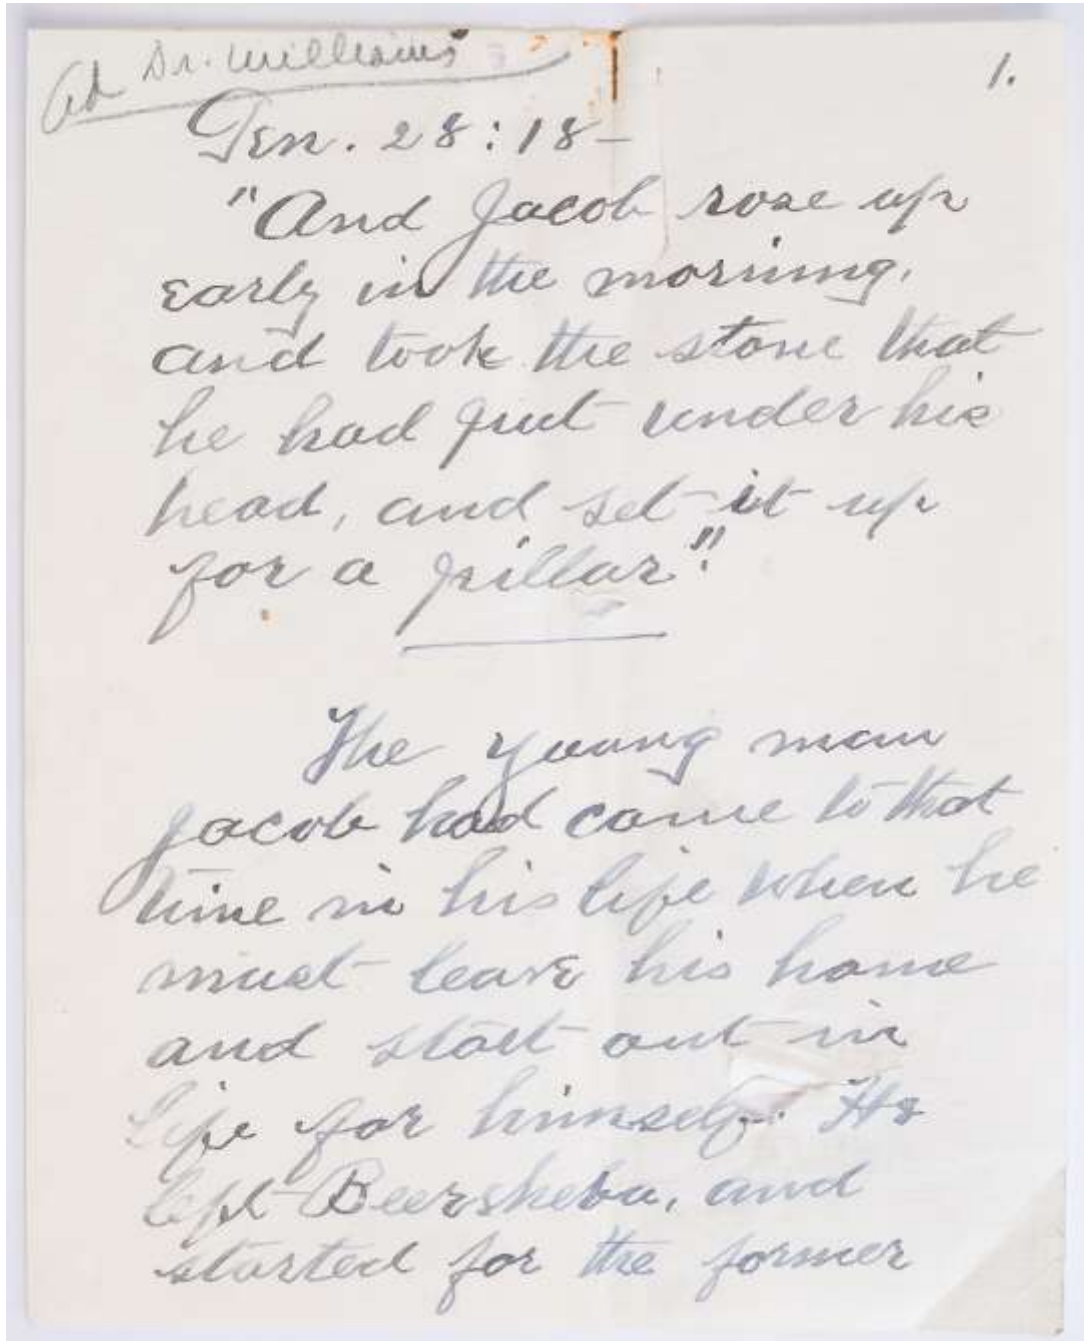 Dr. Williams
1.
Gen. 28:18-
"And Jacob rose up
early in the morning,
and took the stone that
he had put under his
head, and set it up
for a pillar."
The young man
Jacob had come to that
time in his life when he
must leave his home
and start out in
life for himself. He
left Beersheba, and
started for the former